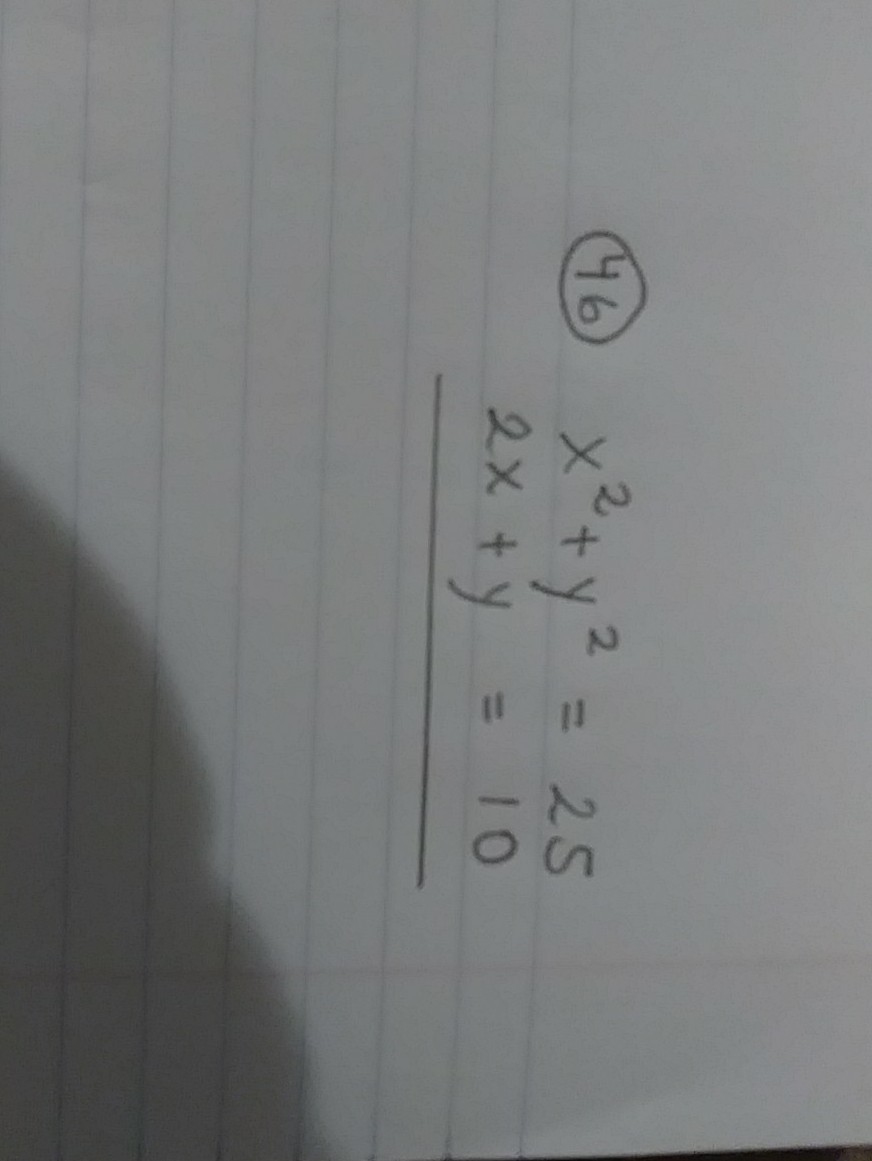 46 x² + y² = 25
2x + y = 10